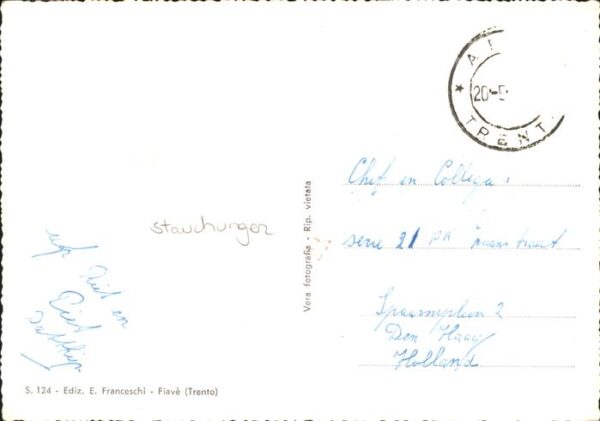 A
20-5
TRENT
Chef en Collega's
serie 21 PK
stauchungen
Vera fotografia - Rip. vietata
Riet en
Piet
2
Den Haag
Holland
S. 124 - Ediz. E. Franceschi - Fiavè (Trento)